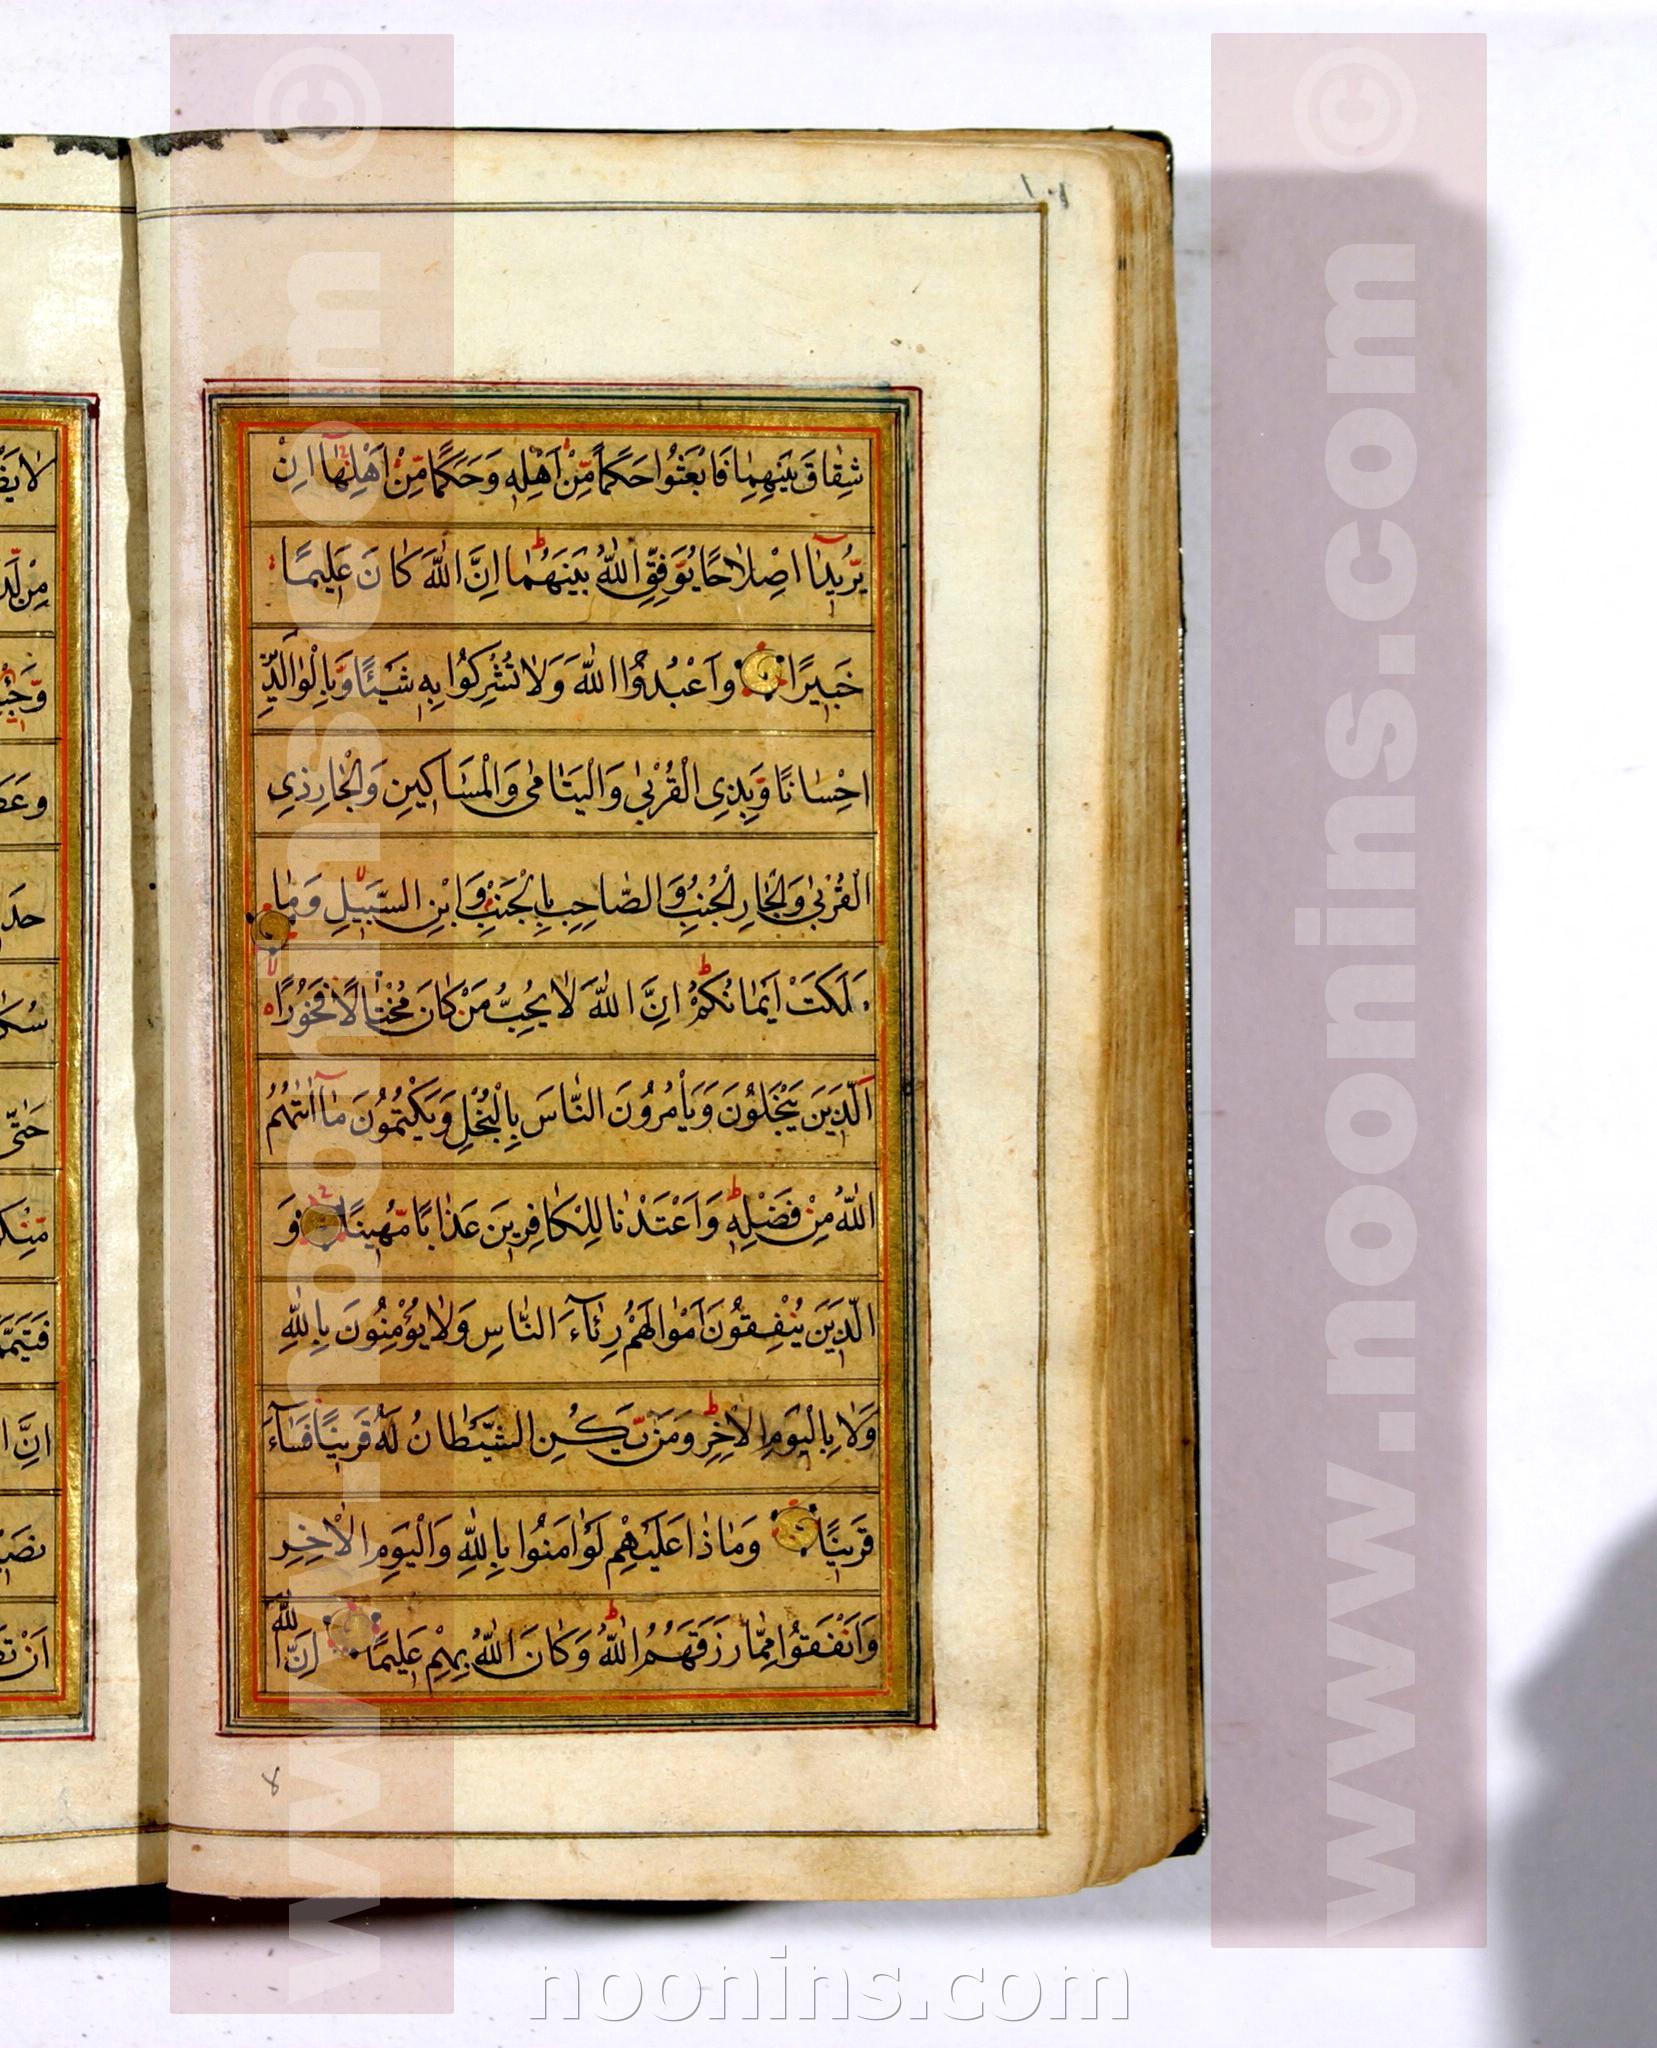 شِقاقَ بَيْنِهِما فَابْعَثُوا حَكَماً مِنْ اَهْلِهِ وَحَكَمًا مِنْ اَهْلِهآ اِنْ
يُرِيدآ اِصْلاحًا يُوَفِّقِ اللّٰهُ بَيْنَهُما اِنَّ اللّٰهَ كانَ عَلِيمًا
خَبِيرًا وَاعْبُدُوا اللّٰهَ وَلا تُشْرِكُوا بِهِ شَيْئًا وَبِالْوالِدَيْنِ
اِحْسانًا وَبِذِي الْقُرْبٰى وَالْيَتامٰى وَالْمَساكِينِ وَالْجارِ ذِي
الْقُرْبٰى وَالْجارِ الْجُنُبِ وَالصّاحِبِ بِالْجَنْبِ وَابْنِ السَّبِيلِ وَما
مَلَكَتْ اَيْمانُكُمْ اِنَّ اللّٰهَ لا يُحِبُّ مَنْ كانَ مُخْتالًا فَخُورًا
اَلَّذِينَ يَبْخَلُونَ وَيَأْمُرُونَ النّاسَ بِالْبُخْلِ وَيَكْتُمُونَ مآ اٰتٰهُمُ
اللّٰهُ مِنْ فَضْلِهِ وَاَعْتَدْنا لِلْكافِرِينَ عَذابًا مُهِينًا وَ
الَّذِينَ يُنْفِقُونَ اَمْوالَهُمْ رِئآءَ النّاسِ وَلا يُؤْمِنُونَ بِاللّٰهِ
وَلا بِالْيَوْمِ الْاٰخِرِ وَمَنْ يَكُنِ الشَّيْطانُ لَهُ قَرِينًا فَسآءَ
قَرِينًا وَماذا عَلَيْهِمْ لَوْ اٰمَنُوا بِاللّٰهِ وَالْيَوْمِ الْاٰخِرِ
وَاَنْفَقُوا مِمّا رَزَقَهُمُ اللّٰهُ وَكانَ اللّٰهُ بِهِمْ عَلِيمًا اِنَّ اللّٰهَ
لا
مِنْ
وَجِئْنا
حَتّٰى
اِنَّ
اَنْ
www.noonins.com ©
www.noonins.com ©
noonins.com